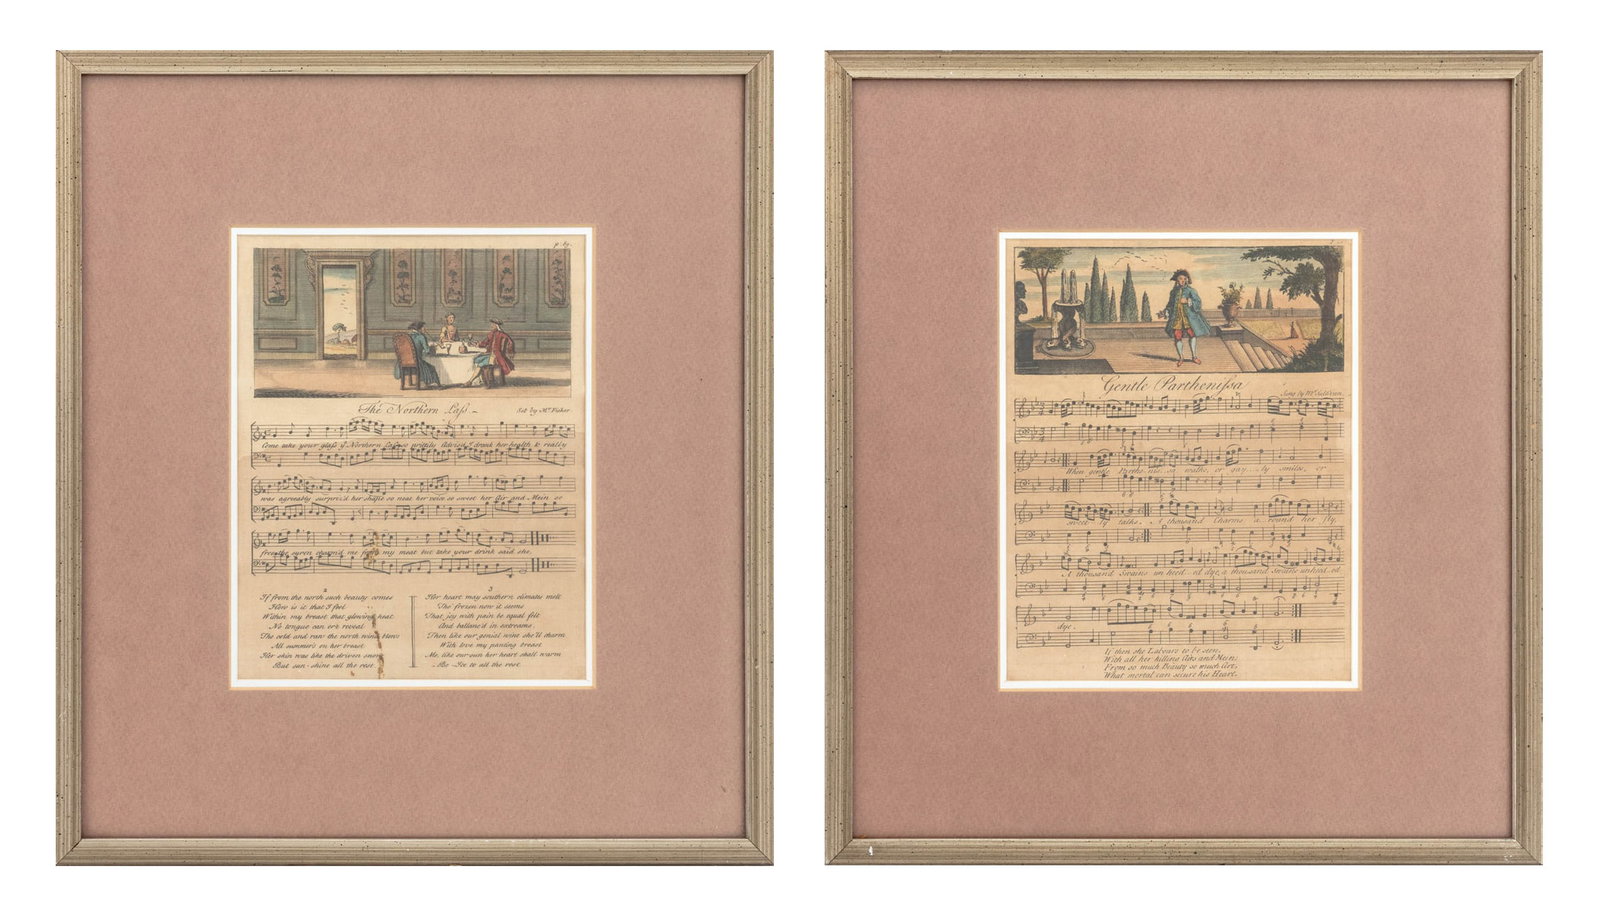 p. 69.
The Northern Lass
Set by Mr. Fisher
Come take your glass ye Northern Lass so prittily Advis'd I drank her health & really
was agreably surpriz'd her shape so neat her voice so sweet her Air and Mein so
free the syren charm'd me from my meat but take your drink said she.
2
If from the north such beauty comes
How is it that I feel
Within my breast that glowing heat
No tongue can ere reveal
Tho cold and raw the north wind blows
All summer's on her breast
Her skin was like the driven snow
But sun-shine all the rest
3
Her heart may southern climates melt
Tho' frozen now it seems
That joy with pain be equal felt
And ballanc'd in extreams
Then like our genial wine she'll charm
With love my panting breast
Me, like our sun her heart shall warm
Be Ice to all the rest
Gentle Parthenissa
Sung by Mr.
When gentle Parthe nissa walks, or gay-ly smiles, or
sweet ly talks. A thousand Charms a round her fly,
A thousand Swains un heed-ed dye, a thousand Swains unheed-ed
dye.
If then she Labours to be seen,
With all her killing Airs and Mein;
From so much Beauty so much Art,
What mortal can secure his Heart.